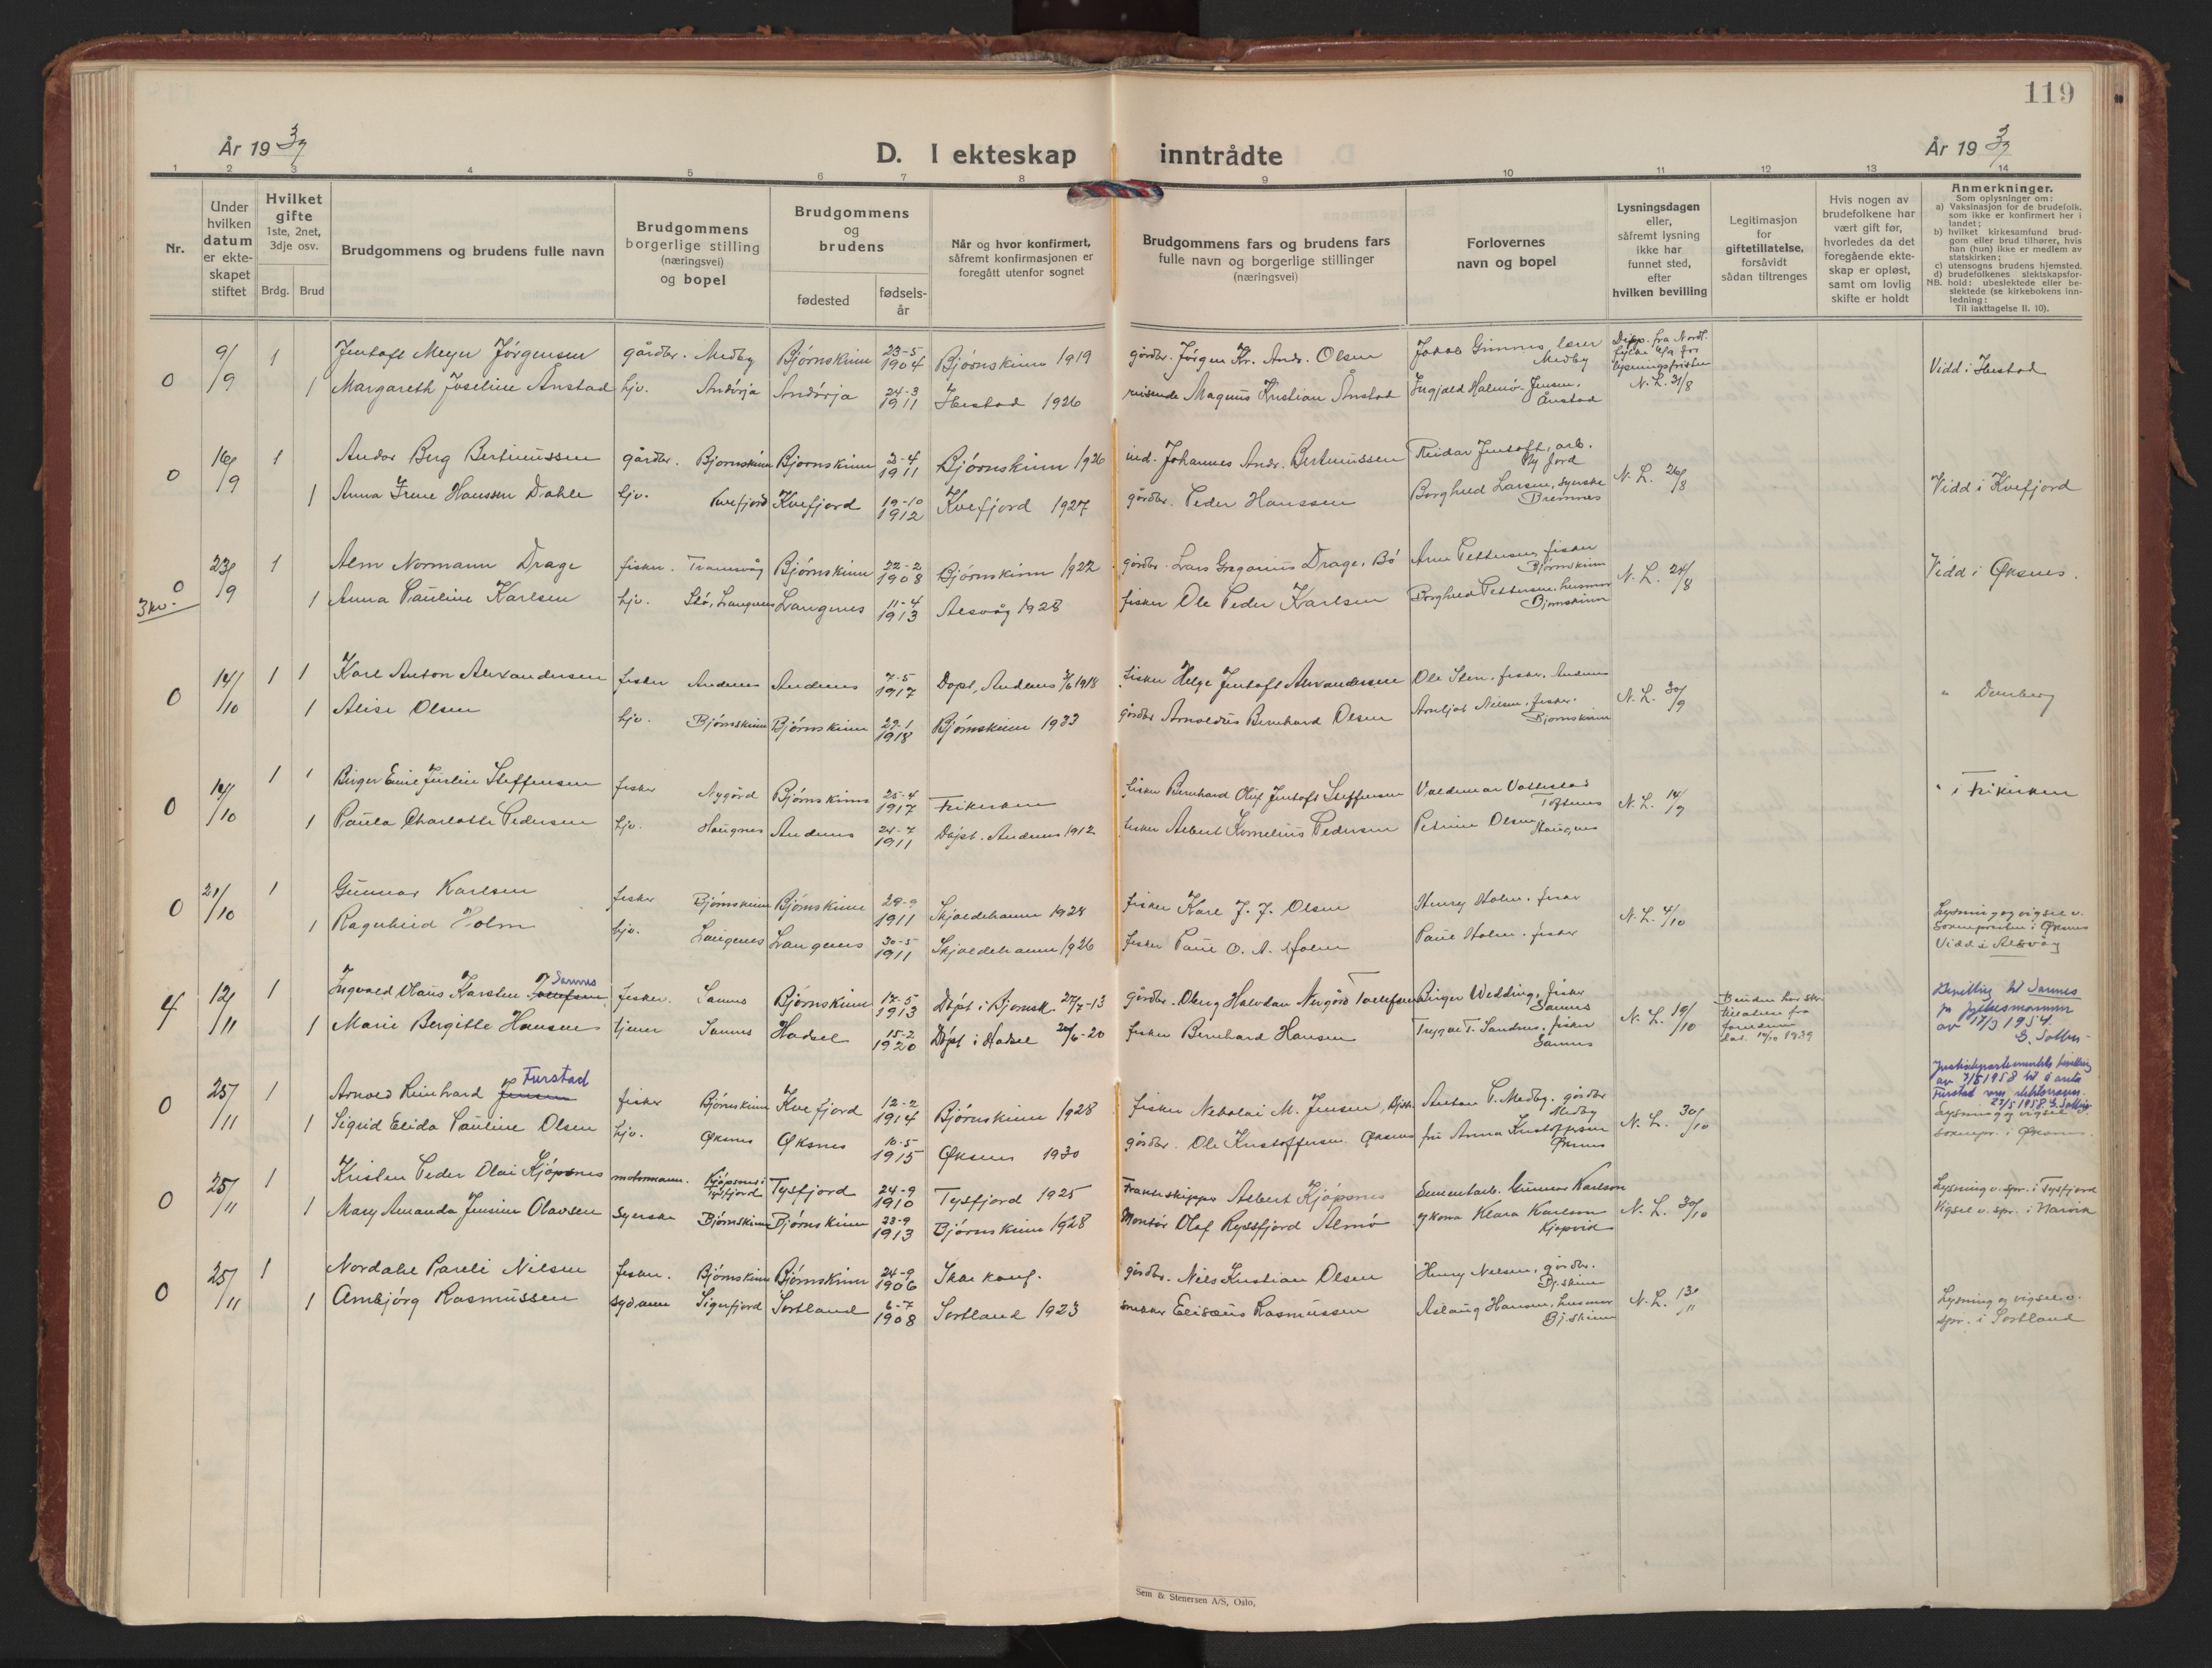 119
År 19 37
D. I ekteskap inntrådte
År 19 37
1 2 3 4 5 6 7 8 9 10 11 12 13 14
Nr.
Under hvilken datum er ekteskapet stiftet
Hvilket gifte 1ste, 2net, 3dje osv.
Brdg. Brud
Brudgommens og brudens fulle navn
Brudgommens borgerlige stilling (næringsvei) og bopel
Brudgommens og brudens
fødested
fødselsår
Når og hvor konfirmert, såfremt konfirmasjonen er foregått utenfor sognet
Brudgommens fars og brudens fars fulle navn og borgerlige stillinger (næringsvei)
Forlovernes navn og bopel
Lysningsdagen eller, såfremt lysning ikke har funnet sted, efter hvilken bevilling
Legitimasjon for giftetillatelse, forsåvidt sådan tiltrenges
Hvis nogen av brudefolkene har vært gift før, hvorledes da det foregående ekteskap er opløst, samt om lovlig skifte er holdt
Anmerkninger.
Som oplysninger om:
a) Vaksinasjon for de brudefolk. som ikke er konfirmert her i landet;
b) hvilket kirkesamfund brudgom eller brud tilhører, hvis han (hun) ikke er medlem av statskirken;
c) utensogns brudens hjemsted.
d) brudefolkenes slektskapsforhold: ubeslektede eller beslektede (se kirkebokens innledning:
NB.
Til iakttagelse II. 10).
0 9/9 1 Jentoft Meyer Jörgensen gårdbr. Medby Bjørnskinn 23-5 1904 Bjørnskinn 1919 gårdbr. Jörgen Kr. Andr. Olsen Jakob Gimnes, lærer Medby Disp. fra Nordl. fylke for lysningsfristen N. L. 31/8 Vidd i Ibestad
1 Margareth Joseline Ånstad hjv. Andørja Andørja 24-3 1911 Ibestad 1926 reisende Magnus Kristian Ånstad Ingjald Halmø-Jensen, Ånstad
0 16/9 1 Andor Berg Bertinussen gårdbr. Bjørnskinn Bjørnskinn 2-4 1911 Bjørnskinn 1926 ind. Johannes Andr. Bertinussen Reidar Jentoft, arb. Ny Jord N. L. 26/8 Vidd i Kvefjord
1 Anna Irene Hanssen Dahle hjv. Kvefjord Kvefjord 19-10 1912 Kvefjord 1927 gårdbr. Peder Hanssen Borghild Larsen, syerske Bremnes
0 23/9 1 Alm Normann Drage fisker. Tranesvåg Bjørnskinn 22-2 1908 Bjørnskinn 1922 gårdbr. Lars Gregorius Drage, Bö Arne Pettersen, fisker Bjørnskinn N. L. 24/8 Vidd i Øksnes.
3 kv. 1 Anna Pauline Karlsen hjv. Stø, Langenes Langenes 11-4 1913 Alsvåg 1928 fisker Ole Peder Karlsen Borghild Pettersen, husmor Bjørnskinn
0 14/10 1 1 Karl Anton Alexandersen fisker Andenes Andenes 7-5 1917 Døpt, Andenes 1918 fisker Helge Jentoft Alexandersen Ole Sten, fisker, Andenes N. L. 30/9 " Dverberg
1 Alise Olsen hjv. Bjørnskinn Bjørnskinn 27-1 1918 Bjørnskinn 1933 gårdbr Arnoldus Bernhard Olsen Arnljot Nilsen, fisker. Bjørnskinn
0 14/10 1 1 Birger Emil Justin Steffensen fisker Nygård Bjørnskinn 25-4 1917 Frikirken fisker Bernhard Oluf Jentoft Steffensen Valdemar Vottestad Toftenes N. L. 14/9 " i Frikirken
1 Paula Charlotte Pedersen hjv. Haugnes Andenes 24-7 1911 Døpt. Andenes 1912 fisker Albert Kornelius Pedersen Petrine Olsen, Haugnes
0 21/10 1 Gunnar Karlsen fisker Bjørnskinn Bjørnskinn 29-9 1911 Skjoldehamn 1928 fisker Karl J. J. Olsen Henry Holm, fisker N. L. 4/10 Lysning og vigsel v. Sokneprsten i Øksnes Vidd i Alsvåg
1 Ragnhild Holm hjv. Langenes Langenes 30-5 1911 Skjoldehamn 1926 fisker Paul O. A. Holm Paul Holm, fisker
4 12/11 1 Ingvald Olaus Karsten Tollefsen Sannes fisker. Sannes Bjørnskinn 17-5 1913 Døpt i Bjørnsk. 27/7-13 gårdbr. Oberg Halvdan Nergård Tollefsen Birger Wedding, fisker Sannes N. L. 19/10 Bruden har skr. tillatelse fra foreldrene dat. Bevilling til Sannes fr fylkesmannen av 17/3 1954. G. Solberg
1 Marie Bergitte Hansen tjener Sannes Hadsel 15-2 1920 Døpt i Hadsel 20/6-20 fisker Bernhard Hansen Trygve T. Sandnes, fisker Sannes
0 25/11 1 Arnold Reinhard Jensen Furstad fisker Bjørnskinn Kvefjord 12-2 1914 Bjørnskinn 1928 fisker Nikolai M. Jensen, Bjsk. Anton P. Medby, gårdbr Medby N. L. 30/10 Justisdepartementets bevilling av 7/5 1958 til å anta Furstad som slektsnavn. 27/5 1958 Lysning og vigsel v. soknepr. i Øksnes.
1 Sigrid Elida Pauline Olsen hjv. Øksnes Øksnes 10-5 1915 Øksnes 1930 gårdbr. Ole Kristoffersen Øksnes fru Anna Kristoffersen Øksnes
0 25/11 1 Kristen Peder Olai Kjöpsnes motormann. Kjöpsnes i Tysfjord Tysfjord 24-9 1910 Tysfjord 1925 Frakteskipper Albert Kjöpsnes Sementarb. Gunnar Karlson N. L. 30/10 Lysning v. spr. i Tysfjord Vigsel v. spr. i Narvik
1 Mary Amanda Jensine Olavsen syerske Bjørnskinn Bjørnskinn 23-9 1913 Bjørnskinn 1928 Montør Olaf Ryssfjord Almø og kona Klara Karlson Kjøpvik
0 25/11 1 Nordahl Pareli Nilsen fisker. Bjørnskinn Bjørnskinn 24-9 1906 Ikke konf. gårdbr. Nils Kristian Olsen Henry Nilsen, gårdbr. Bj.skinn N. L. 13/11 Lysning og vigsel v. spr. i Sortland
1 Ambjörg Rasmussen sydame Sigerfjord Sortland 6-7 1908 Sortland 1923 snekker Elisæus Rasmussen Aslaug Hansen, husmor Bj.skinn
Sem & Stenersen A/S, Oslo.